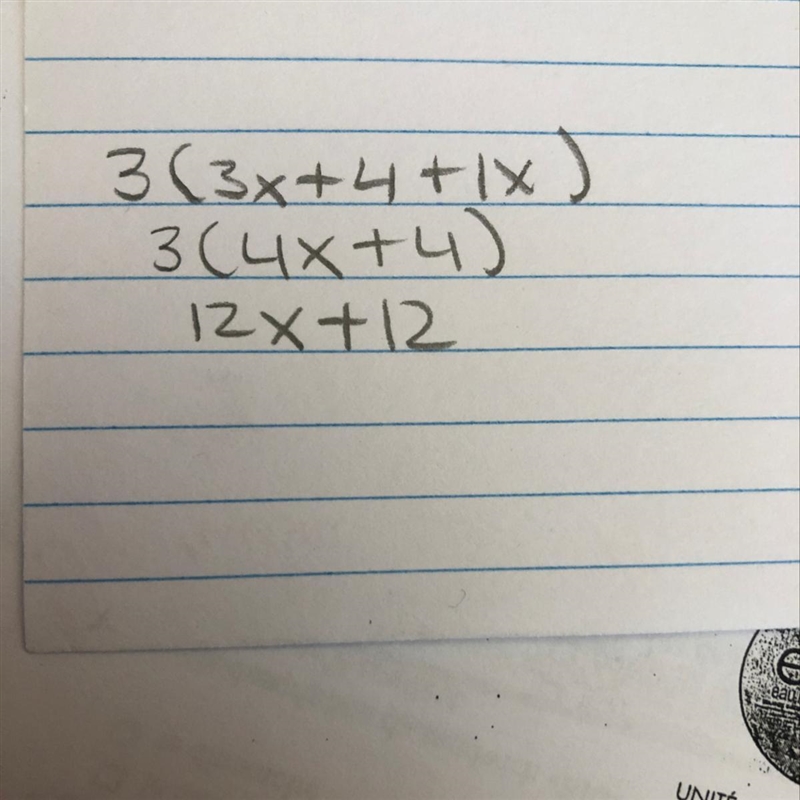 3(3x+4+1x)
3(4x+4)
12x+12
UNITÉ